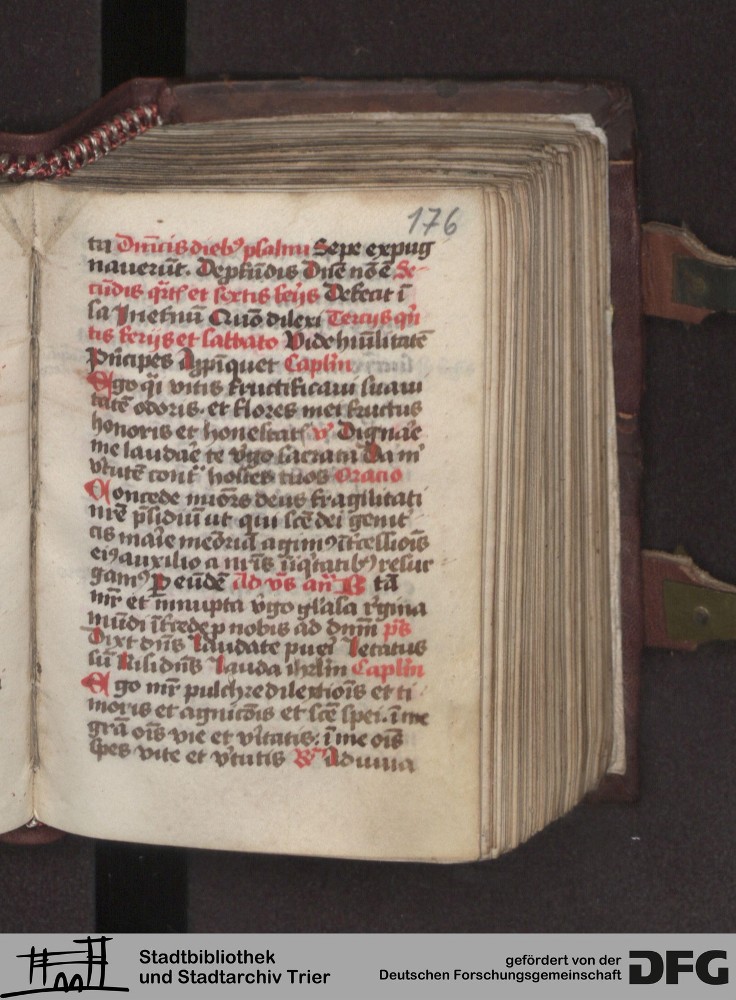 176
ta Dn̄icis dieb⁹ psalmi Sepe expug
nauerūt. De p̄fūdis Dn̄e nō ē Se-
cūdis q̄rt᷒ et sextis ferijs Defecit ī
la In etnū Quō dilexi Tercijs qn̄
tis ferijs et sabbato Vide hūilitatē
Prīcipes Appīquet Caplm̄
Ego q̄i vitis fructificaui suaui
tatē odoris. et flores mei fructus
honoris et honestat᷒ v᷒ Dignāe
me laudāe te v̓go sacrata Da m᷒
v̓tutē cont᷒ hostes tuos Oracio
Concede mīors deus fragilitati
nr̄e p̄sidiū ut qui scē dei genit᷒
cis marie memoriā agim⁹ īt̓cessiois
ei⁹ auxilio a nr̄is īiq̄tatib⁹ resur
gam⁹ P eūdē Ad v̄s an̄ B tā
mr̄ et innupta v̓go gl̄osa r̓gina
mūdi īt̓cede p nobis ad dn̄m p̄s
Dixt dn̄s Laudate puei Letatus
sū Nisi dn̄s Lauda ihrlm̄ Caplm̄
Ego mr̄ pulchre dilectiois et ti
moris et agnicōis et scē spei. ī me
grā oīs vie et v̓itatis. ī me oīs
spes vite et v̓tutis R᷒ Adiuua
Stadtbibliothek
und Stadtarchiv Trier
gefördert von der
Deutschen Forschungsgemeinschaft DFG